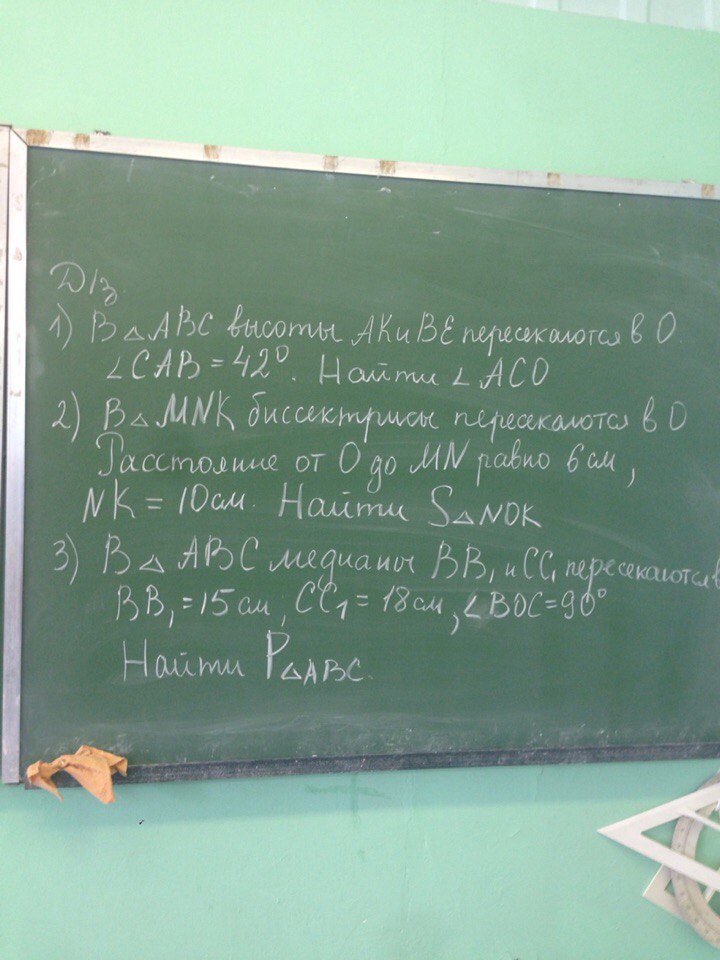 Д/з
1) В △ ABC высоты AK и BE пересекаются в O.
∠CAB = 42°. Найти ∠ACO
2) В △ MNK биссектрисы пересекаются в O
Расстояние от O до MN равно 6 см,
NK = 10 см. Найти S△NOK
3) В △ ABC медианы BB₁ и CC₁ пересекаются в
BB₁ = 15 см, CC₁ = 18 см, ∠BOC = 90°
Найти P△ABC.